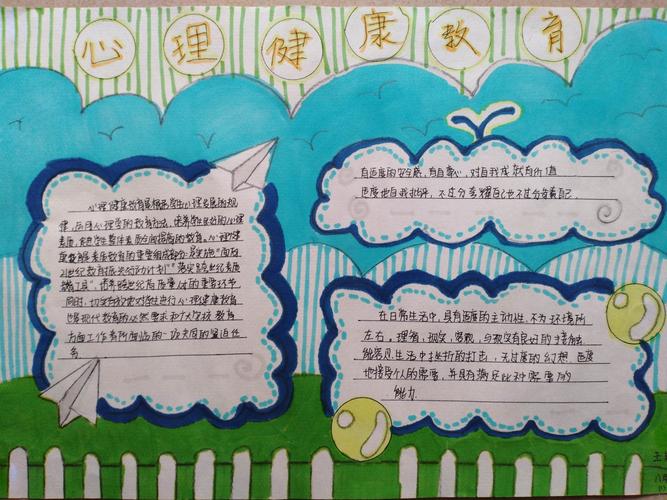 心理健康教育
心理健康教育是根据学生心理发展的规
律,运用心理学的教育方法,培养学生良好的心理
素质,促进学生整体素质全面提高的教育。心理健
康教育是素质教育的重要组成部分,是实施"面向
21世纪教育振兴行动计划"落实跨世纪素质
工程",培养跨世纪高质量人才的重要环节
同时,切实有效地对学生进行心理健康教育
也是现代教育的必然要求和广大学校教育
方面工作者所面临的一项共同的紧迫任
务
有适度的安全感,有自尊心,对自我成就有价值
适度地自我批评,不过分夸耀自己也不过分苛责自己
在日常生活中,具有适度的主动性,不为环境所
左右。理智,现实,客观,与现实有良好的接触,
能容忍生活中挫折的打击,无过度的幻想,适度
地接受个人的需要,并具有满足此种需要的
能力